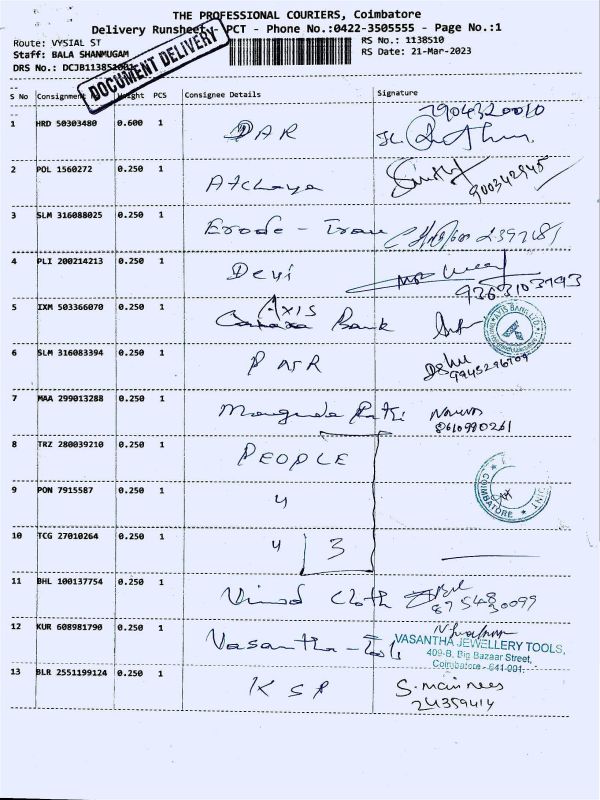 THE PROFESSIONAL COURIERS, Coimbatore
Delivery Runsheet - PCT - Phone No.:0422-3505555 - Page No.:1
Route: VYSIAL ST
RS No.: 1138510
Staff: BALA SHANMUGAM
RS Date: 21-Mar-2023
DRS No.: DCJB1138510
DOCUMENT DELIVERY
S No Consignment Weight PCS Consignee Details Signature
1 HRD 50303480 0.600 1 DAR 7904320010
2 POL 1560272 0.250 1 Atchaya 900342945
3 SLM 316088025 0.250 1 Erode - Tran
4 PLI 200214213 0.250 1 Devi 9363103793
5 IXM 503366070 0.250 1 Axis Bank
AXIS BANK LTD
6 SLM 316083394 0.250 1 PNR 9945296709
7 MAA 299013288 0.250 1 8610990261
8 TRZ 280039210 0.250 1 PEOPLE
9 PON 7915587 0.250 1 4
COIMBATORE
10 TCG 27010264 0.250 1 4 3
11 BHL 100137754 0.250 1 Vinod Cloth 87548 30099
12 KUR 608981790 0.250 1 Vasantha - Tools
VASANTHA JEWELLERY TOOLS,
409-B, Big Bazaar Street,
Coimbatore - 641 001.
13 BLR 2551199124 0.250 1 KSP
24359414